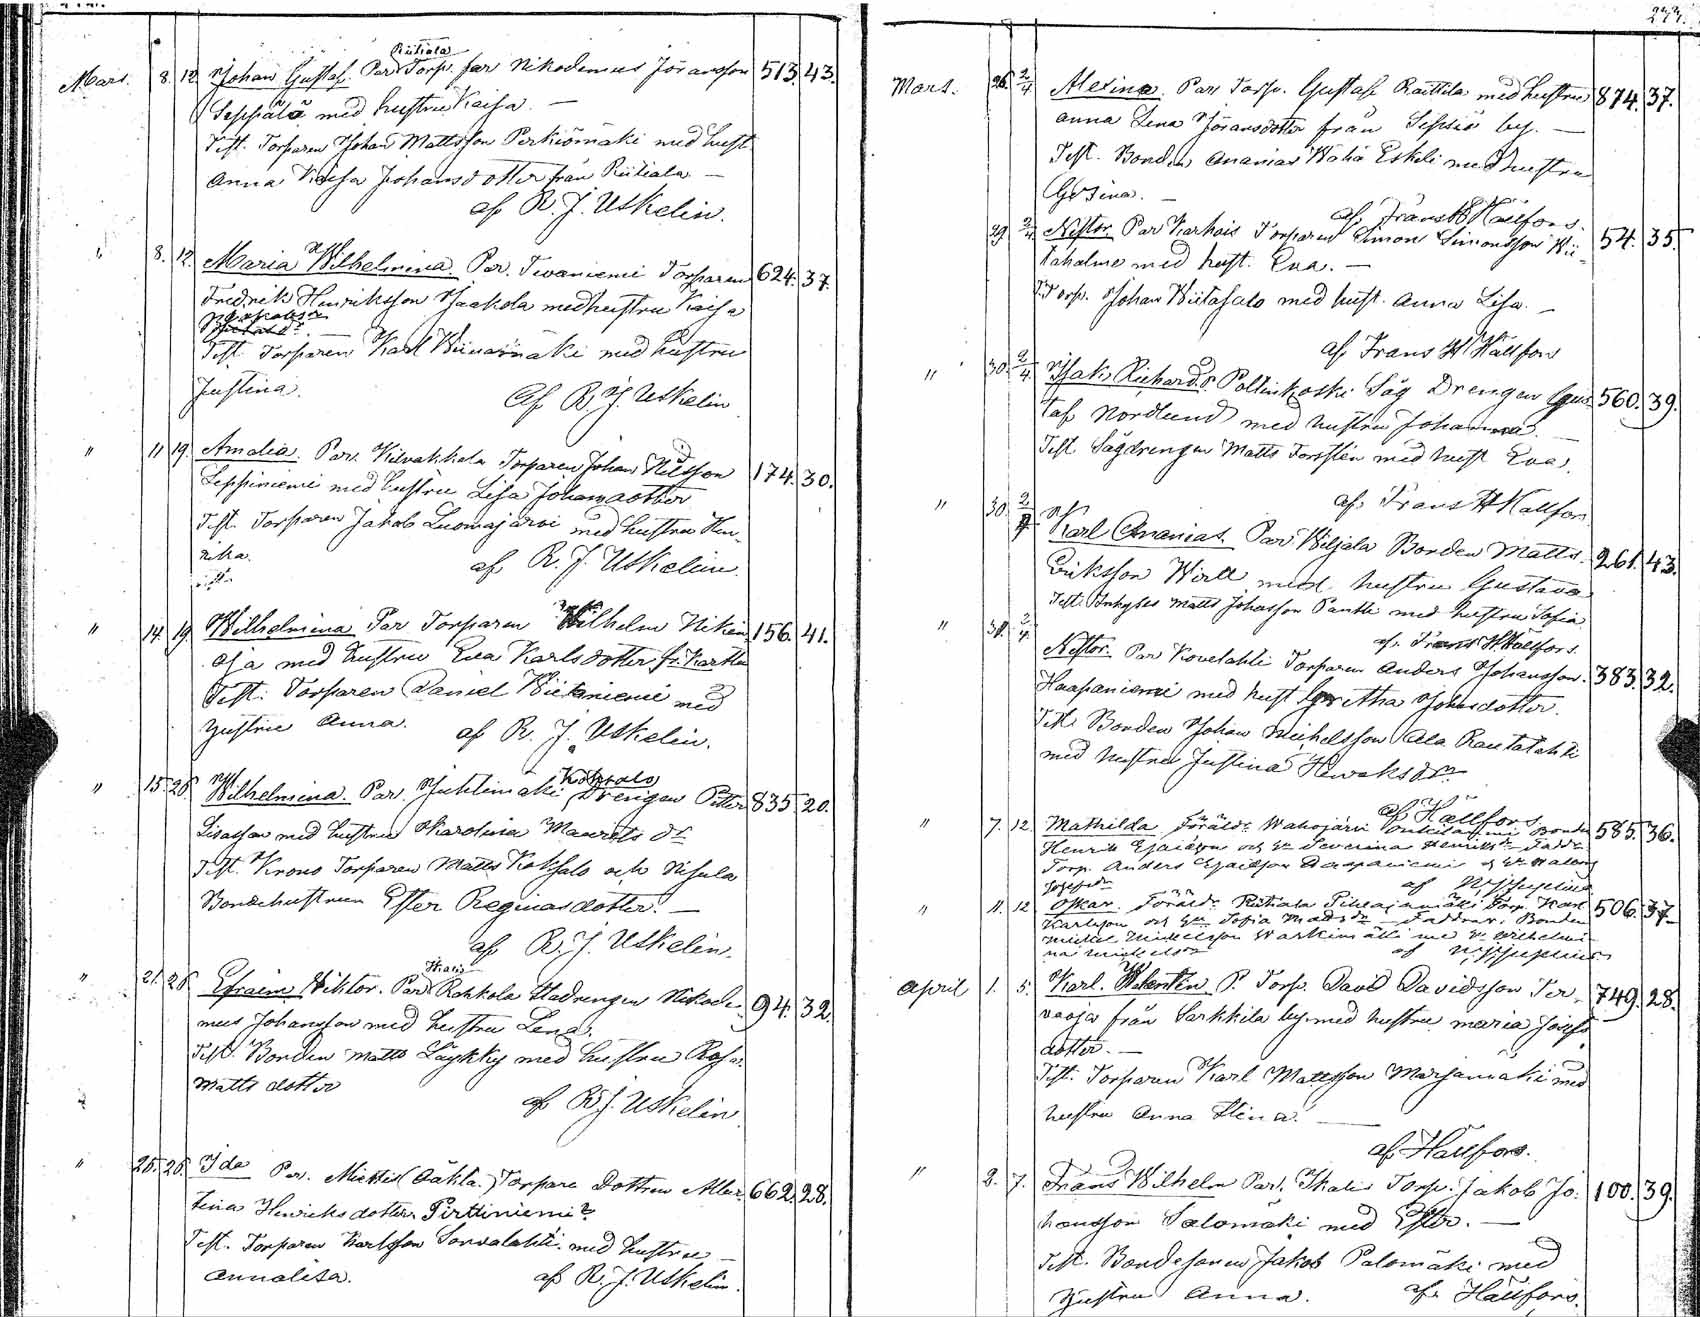 233.
Mars. 8. 12. Johan Gustaf. Par Riitiala Torp. far Nikodemus Jöransson 513. 43.
Seppälä med hustru Kaisa. —
Test. Torparen Johan Mattsson Perkiömäki med hust
Anna Kaisa Johansdotter från Riitiala —
af R. J. Uskelin.
" 8. 12. Maria Wilhelmina. Par. Tevaniemi Torparen 624. 37.
Fredrik Henriksson Jaakola med hustru Kaisa
Test. Torparen Karl Wiinamäki med hustru
Justina.
Af R. J. Uskelin
" 11 19. Amalia. Par. Kilvakkala Torparen Johan Nilsson 174. 30.
Leppiniemi med hustru Lisa Johansdotter
Test. Torparen Jakob Luomajärvi med hustru Hen-
rika.
af R. J. Uskelin.
" 14. 19. Wilhelmina Par Torparen Wilhelm Nikin 156. 41.
oja med hustru Eva Karlsdotter fr. Karttu
Test. Torparen Daniel Wiitaniemi med
hustru Anna.
af R. J. Uskelin.
" 15. 26. Wilhelmina. Par. Juhtimäki Koksalo Drengen Petter 835. 20.
Lisasson med hustru Karolina Maurits dr
Test. Krono Torparen Matts Koksalo och Nisula
Bondehustrun Ester Reginasdotter. —
af R. J. Uskelin.
" 21. 26. Efraim Wiktor. Par Ikalis Rahkola Stadrengen Nikode- 94. 32.
mus Johansson med hustru Lena.
Test. Bonden Matts Läykky med hustru Rosa
Matts dotter
af R. J. Uskelin
" 25. 26. Ida Par. Miettis (Oäkta.) Torpare dottren Alber- 662. 28.
tina Henriksdotter Pirttiniemi?
Test. Torparen Karlsson Sarvalahti med hustru
Annalisa.
af R. J. Uskelin.
Mars. 26. 2/4 Alexina. Par Torp. Gustaf Raittila med hustru 874. 37.
Anna Lena Jöransdotter från Sipsiö by. —
Test. Bonden Ananias Waha Eskeli med hustru
Gesina. —
af Frans H Hällfors.
29. 2/4. Nestor. Par Karhois Torparen Simon Simonsson Wii- 54. 35.
taholme med hust. Eva. —
T. Torp. Johan Wiitasalo med hust. Anna Lisa. —
af Frans H Hällfors
" 30. 2/4. Isak Richard. P Poltinkoski Såg Drengen Gus- 560. 39.
taf Nordlund med hustru Johanna. —
Test. Sågdrengen Matts Forsstén med hust Eva.
af Frans H Hällfors
" 30. 2/4 Karl Ananias. Par Wiljala Bonden Matts 261. 43.
Eriksson Wirtt med hustru Gustava
Test. Inhyses Matts Johansson Pantti med hustru Sofia
af Frans H Hällfors.
" 31. 2/4. Nestor. Par Kovelahti Torparen Anders Johansson 383. 32.
Haapaniemi med hust Gretha Johnsdotter.
Test. Bonden Johan Michelsson Ala Rautalahti
med hustru Justina Henriksdr
af Hällfors.
" 7. 12. Mathilda Föräldr. Wahojärvi Bonden 585. 36.
Henrik Esaiasson och hu Severina Henriksdr Faddr.
Torp. Anders Esaiasson Haapaniemi
" 11. 12 Oskar. Föräldr. Riitiala Torp. Karl 506. 37
Karlsson och hu Sofia Madsdr Faddrar. Bonden
Mickel Mickelsson Warkimäki med hu Wilhelmi-
na Mickelsdr
April 1. 5. Karl. Walentin P. Torp. David Davidsson Ter- 749. 28.
vaoja från Sarkkila by med hustru Maria Josefs
dotter. —
Test. Torparen Karl Mattsson Marjamäki med
hustru Anna Stina. —
af Hällfors.
" 2. 7. Frans Wilhelm Par. Ikalis Torp. Jakob Jo- 100. 39.
hansson Salomäki med Ester. —
Test. Bondesonen Jakob Palomäki med
hustru Anna.
af Hällfors.